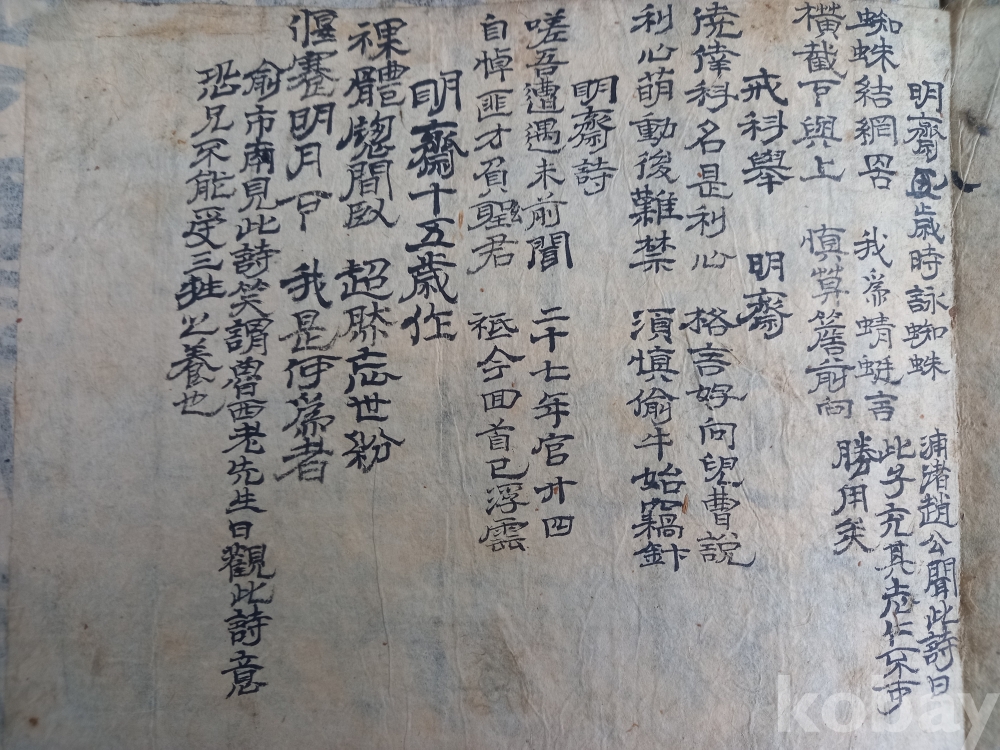 明齋五歲時詠蜘蛛
浦渚趙公聞此詩曰
此子充其志仁不可
勝用矣
蜘蛛結網罟 我爲蜻蜓言
橫截下與上 愼莫簷前向
戒科擧 明齋
僥倖科名是利心 格言好向兒曹說
利心萌動後難禁 須愼偷牛始竊針
明齋詩
嗟吾遭遇未前聞 二十七年官卄四
自悼匪才負聖君 祗今回首已浮雲
明齋十五歲作
裸體窓間臥 超然忘世紛
偃蹇明月下 我是何爲者
俞市南見此詩笑謂魯西老先生曰觀此詩意
恐兄不能受三牲之養也
kobay